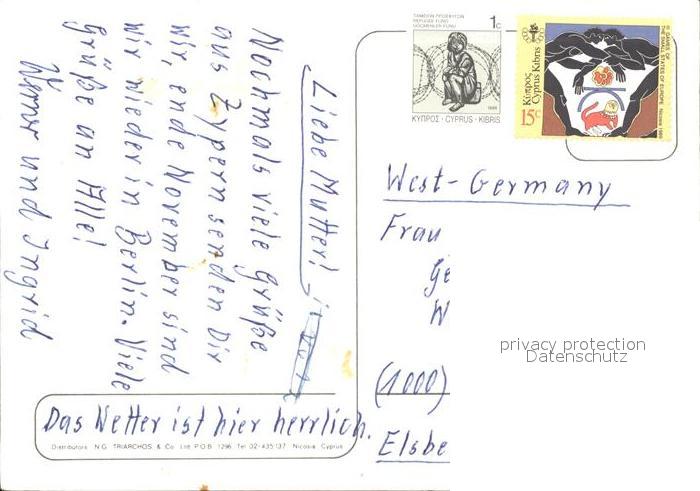 Liebe Mutter!
Nochmals viele Grüße
aus Zypern senden Dir
wir, ende November sind
wir wieder in Berlin. Viele
Grüße an Alle!
Werner und Ingrid
Das Wetter ist hier herrlich.
Distributors: N.G. TRIARCHOS & Co. Ltd. P.O.B. 1296, Tel. 02-435137, Nicosia, Cyprus
ΤΑΜΕΙΟΝ ΠΡΟΣΦΥΓΩΝ
REFUGEE FUND
GÖÇMENLER FONU
1c
ΚΥΠΡΟΣ · CYPRUS · KIBRIS
Κύπρος
Cyprus Kıbrıs
15c
III GAMES OF
THE SMALL STATES OF EUROPE Nicosia 1989
West-Germany
Frau
Ge
W
(1000)
Elsbe
privacy protection
Datenschutz